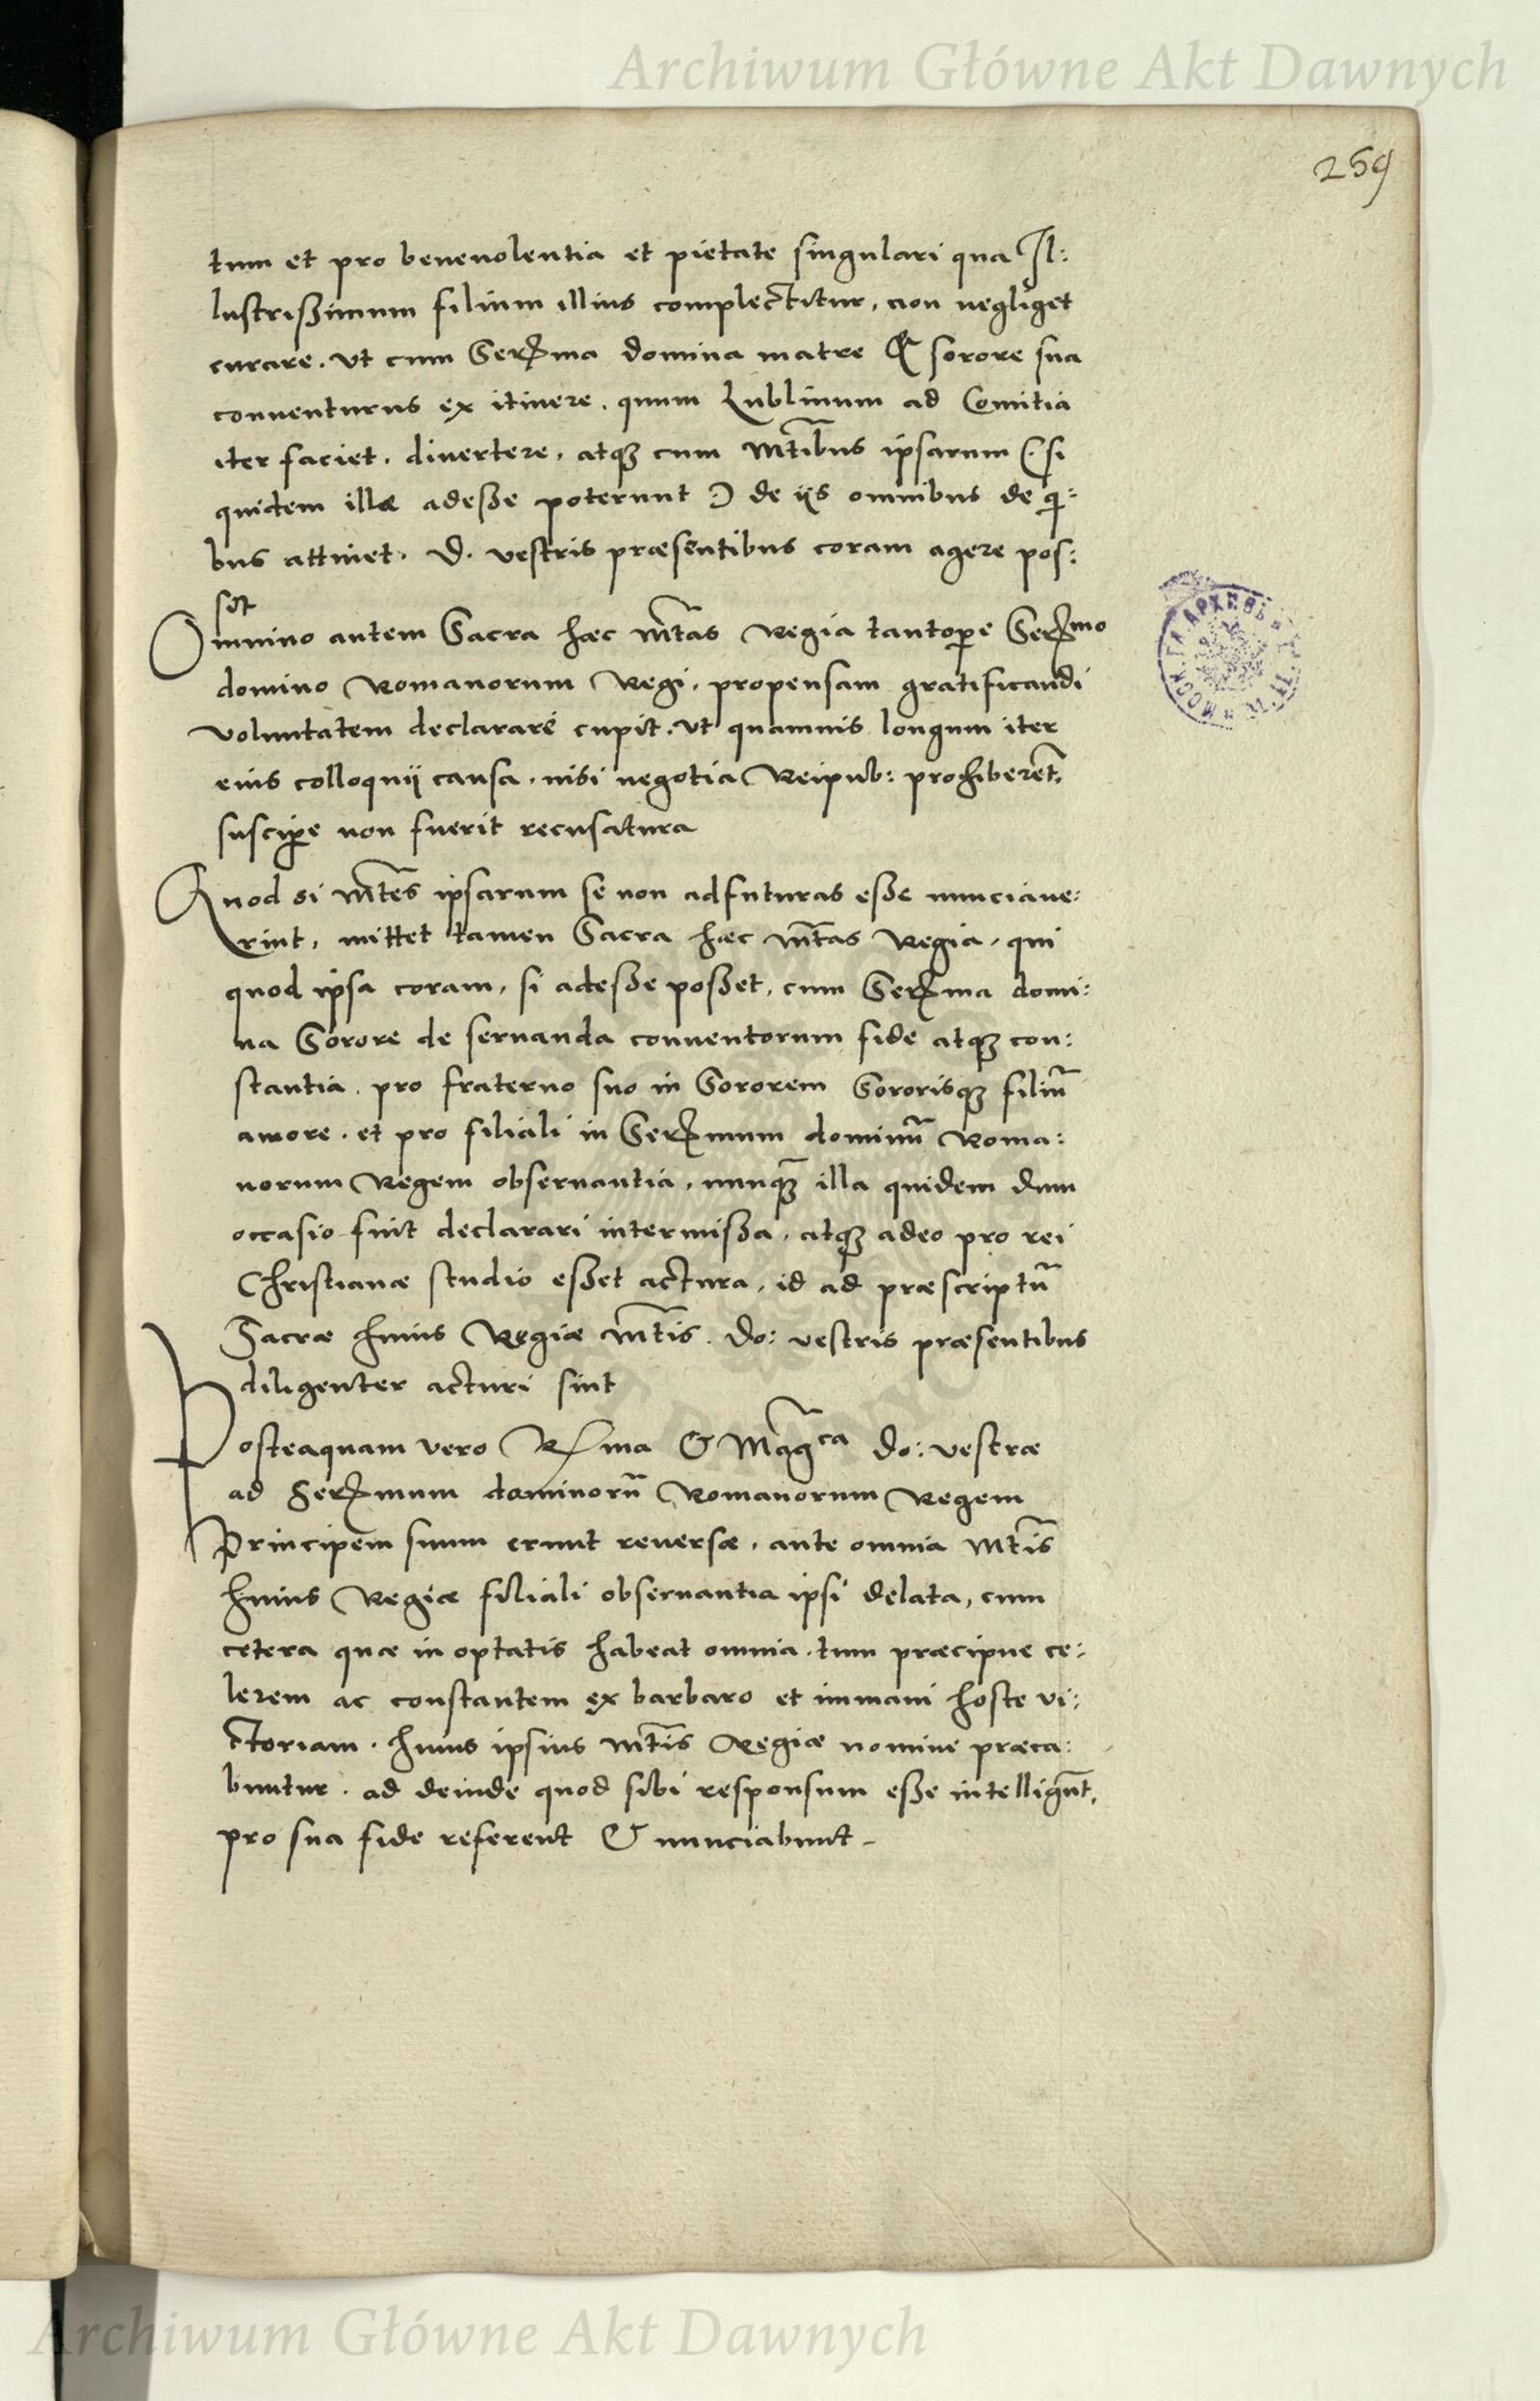 Archiwum Główne Akt Dawnych
259
tum et pro beneuolentia et pietate singulari qua Il:
lustrißimum filium illius complectitur, non negliget
curare. Vt cum Serma domina matre & sorore sua
conuenturus ex itinere, quum Lublinum ad Comitia
iter faciet, diuertere, atq; cum Mtibus ipsarum (: si
quidem illæ adeße poterunt :) de ijs omnibus de qi:
bus attinet. D. vestris præsentibus coram agere pos:
sit
Omnino autem Sacra hæc Mtas Regia tantope Sermo
domino Romanorum Regi, propensam gratificandi
voluntatem declarare cupit, vt quamuis longum iter
eius colloquij causa, nisi negotia Reipub: prohiberet,
suscipe non fuerit recusatura
Quod si Mtes ipsarum se non adfuturas eße nunciaue:
rint, mittet tamen Sacra hæc Mtas Regia, qui
quod ipsa coram, si adeße poßet, cum Serma domi:
na Sorore de seruanda conuentorum fide atq; con:
stantia, pro fraterno suo in Sororem Sororisq; filiū
amore, et pro filiali in Sermum dominū Roma:
norum Regem obseruantia, nunq; illa quidem dum
occasio fuit declarari intermißa, atq; adeo pro rei
Christianæ studio eßet actura, id ad præscriptū
Sacræ huius Regiæ Mtis. Do: vestris præsentibus
diligenter acturi sint
Posteaquam vero Rma & Magca Do: vestræ
ad Sermum dominorū Romanorum Regem
Principem suum erunt reuersæ, ante omnia Mtis
huius Regiæ filiali obseruantia ipsi delata, cum
cetera quæ in optatis habeat omnia, tum præcipue ce:
lerem ac constantem ex barbaro et immani hoste vi:
ctoriam, huius ipsius Mtis Regiæ nomine præca:
buntur. ad deinde quod sibi responsum eße intelligūt,
pro sua fide referent & nunciabunt
Archiwum Główne Akt Dawnych